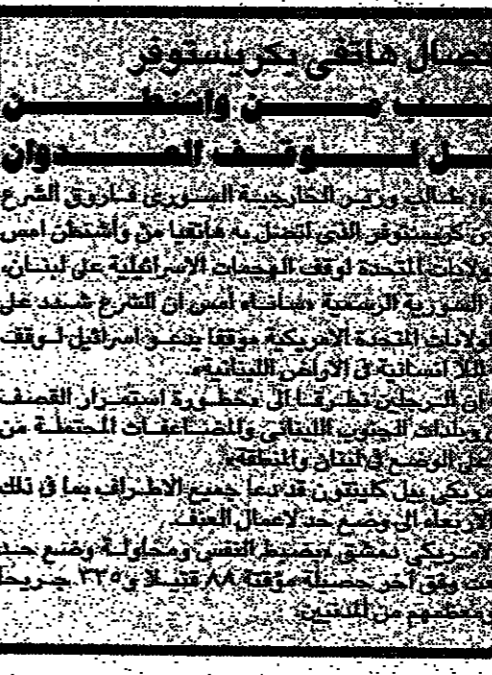 تصال هاتفى بكريستوفر
ـب مـــن واشنطـــن
ـل لـــوقـــف العـــدوان
طالب وزير الخارجية السورى فاروق الشرع
كريستوفر الذى اتصل به هاتفيا من واشنطن امس
ولايات المتحدة لوقف الهجمات الاسرائيلية على لبنان،
السورية الرسمية مساء امس ان الشرع شدد على
لولايات المتحدة الامريكية موقفا يدعو اسرائيل لوقف
اللا انسانية فى الاراضى اللبنانية،
ان الرجلين تطرقا الى خطورة استمرار القصف
وبلدات الجنوب اللبنانى والمضاعفات المحتملة من
على الوضع فى لبنان والمنطقة،
مريكى بيل كلينتون قد دعا جميع الاطراف بما فى ذلك
الاربعاء الى وضع حد لاعمال العنف.
لامريكى دمشق بضبط النفس ومحاولة وضع حد
وفق آخر حصيلة مؤقتة ٨٨ قتيلا و٣٣٥ جريحا
معظمهم من المدنيين.